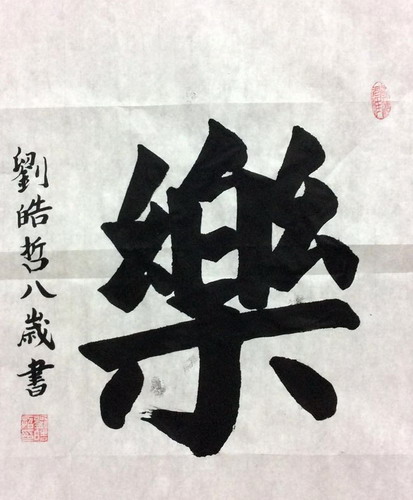 樂
劉皓哲八歲書